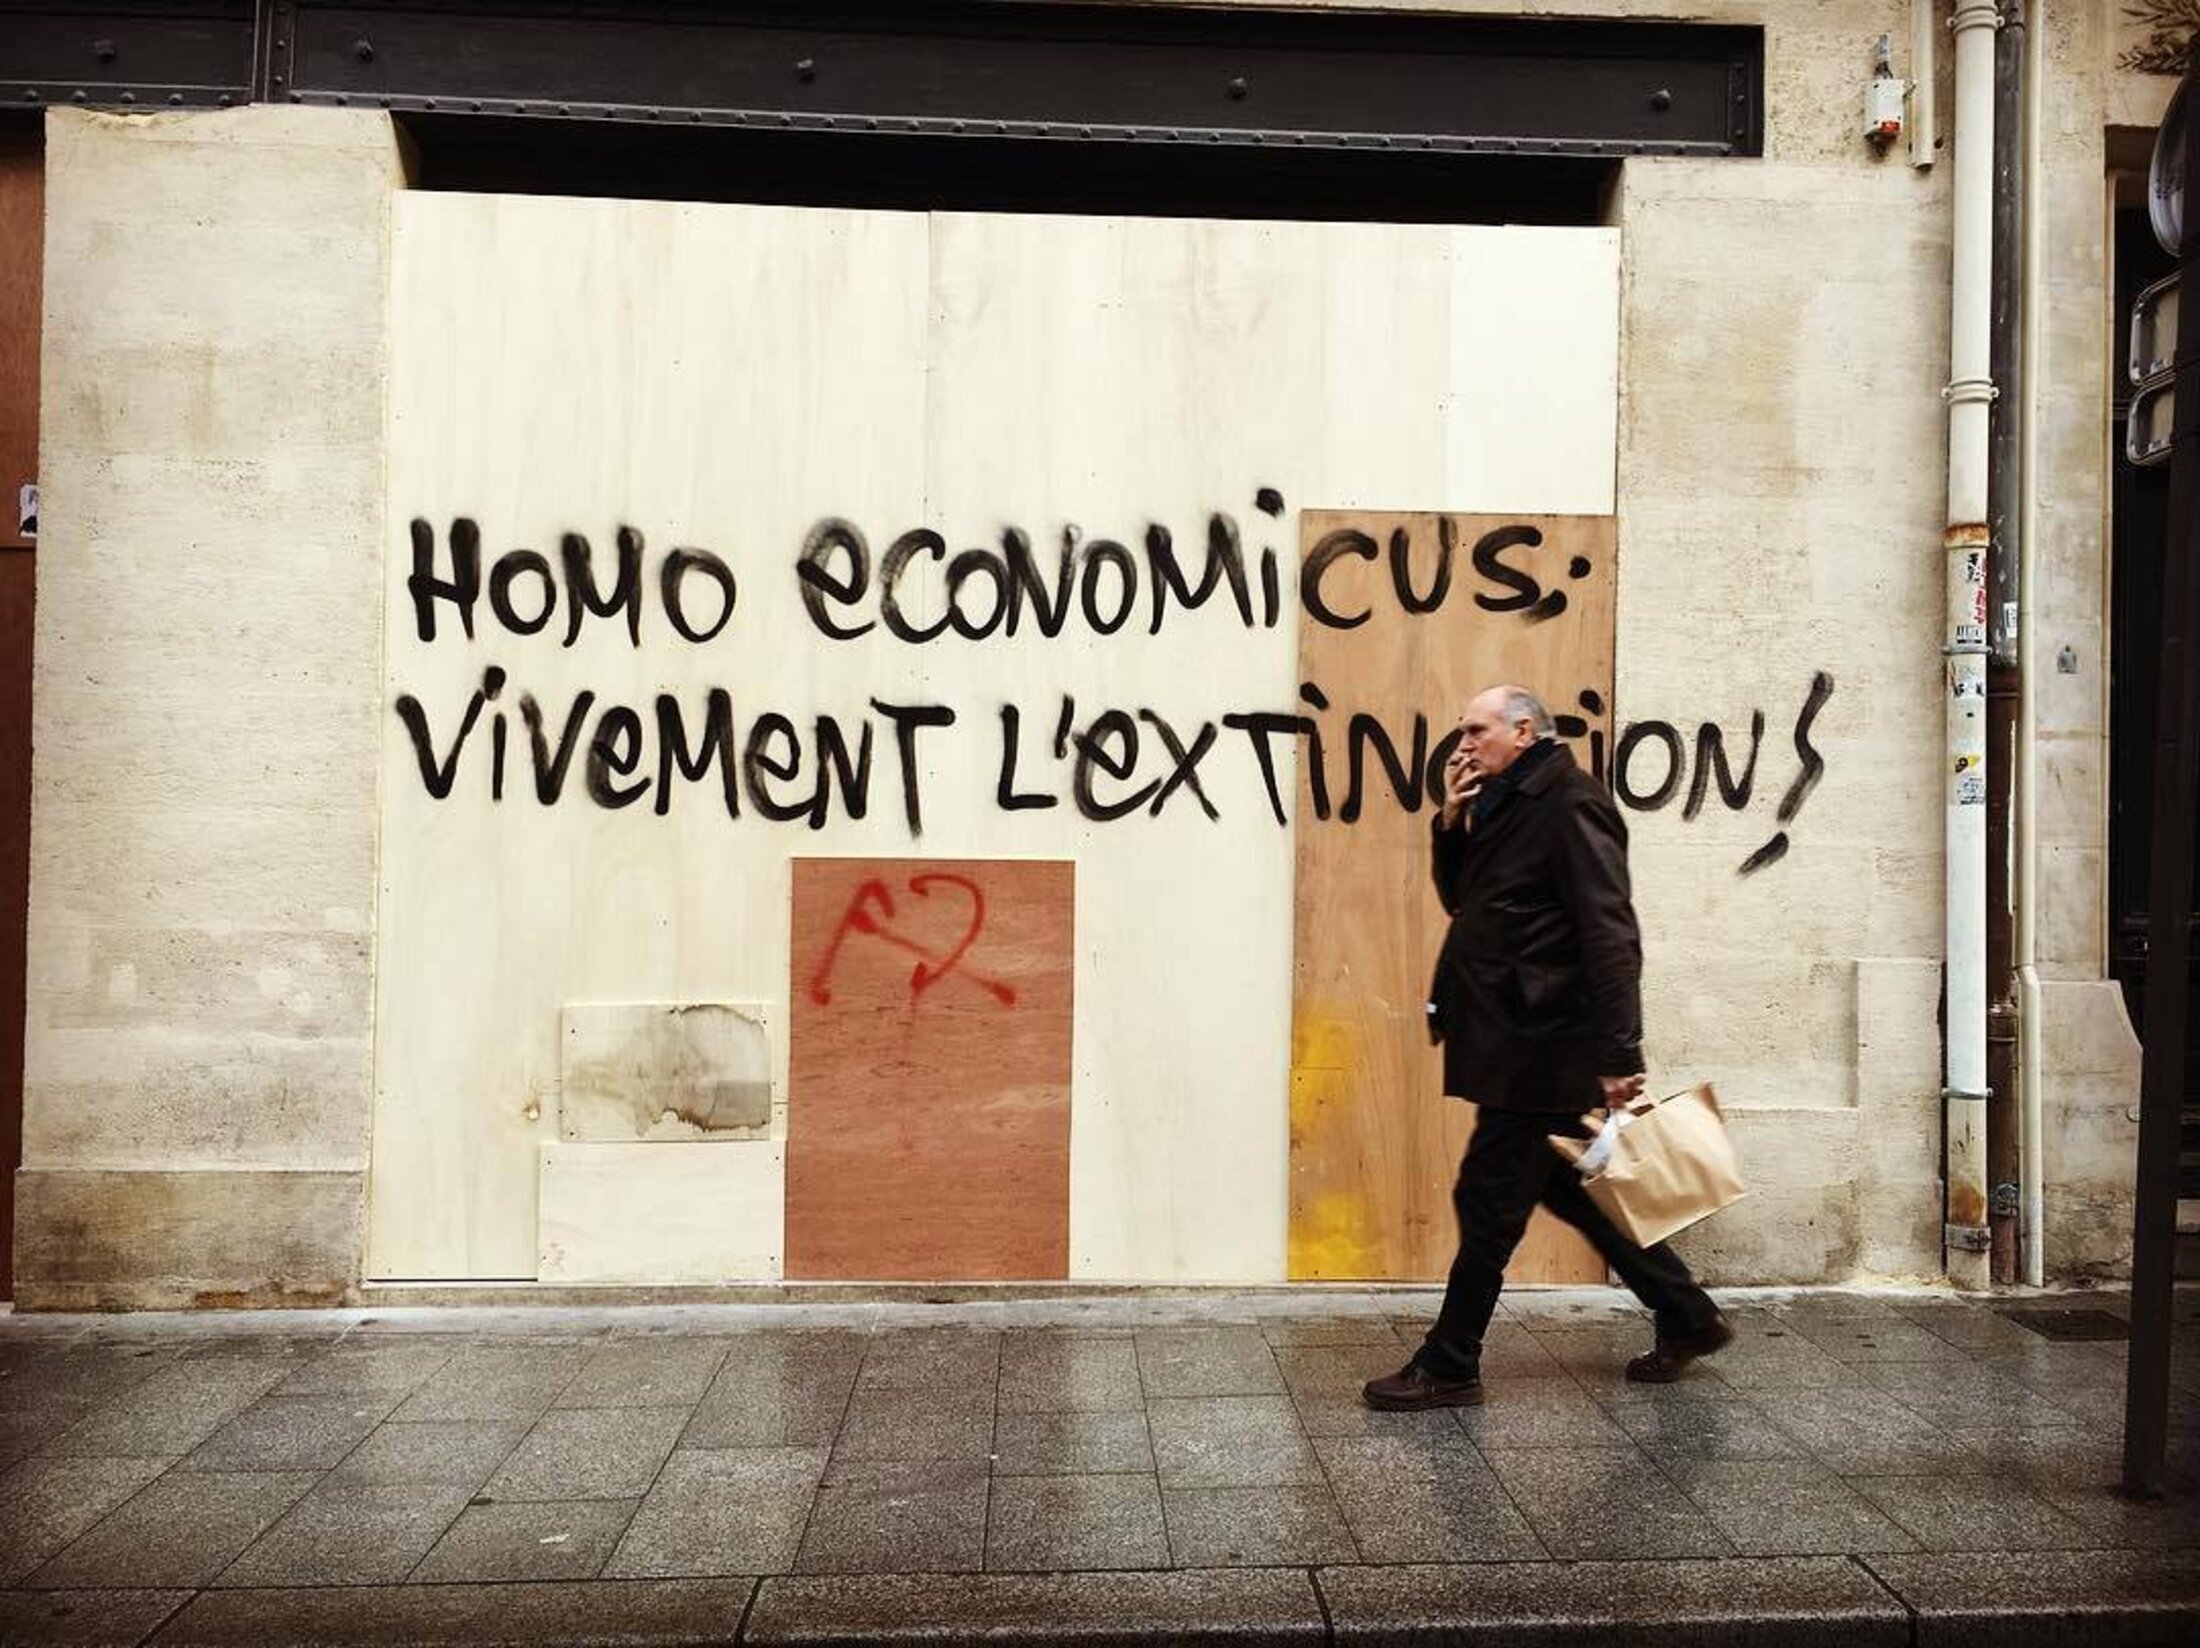 Homo economicus:
vivement l'extinction!